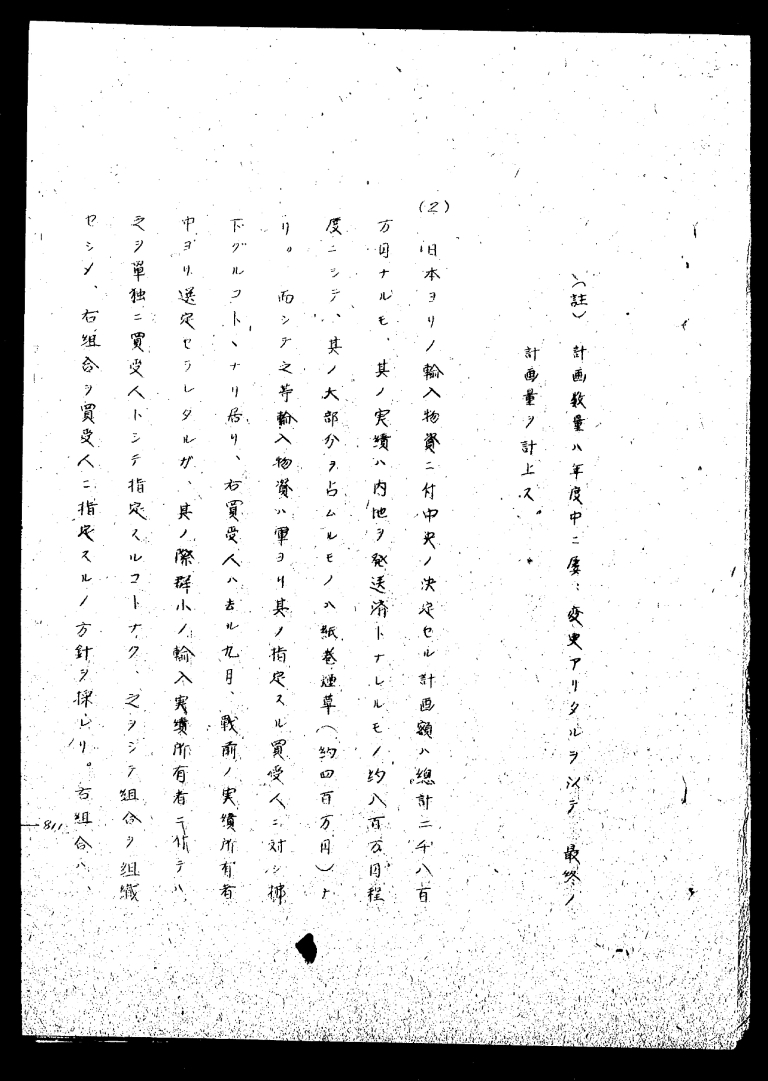 (註) 計画数量ハ年度中ニ屡〻変更アリタルヲ以テ 最終ノ
計画量ヲ計上ス。
(2) 日本ヨリノ輸入物資ニ付中央ノ決定セル計画額ハ総計二千八百
万円ナルモ、其ノ実績ハ内地ヲ発送済トナレルモノ約八百万円程
度ニシテ、其ノ大部分ヲ占ムルモノハ紙巻煙草(約四百万円)ナ
リ。而シテ之等輸入物資ハ軍ヨリ其ノ指定スル買受人ニ対シ払
下グルコトヽナリ居リ、右買受人ハ去ル九月、戦前ノ実績所有者
中ヨリ選定セラレタルガ、其ノ際群小ノ輸入実績所有者ニ付テハ
之ヲ単独ニ買受人トシテ指定スルコトナク、之ヲシテ組合ヲ組織
セシメ、右組合ヲ買受人ニ指定スルノ方針ヲ採レリ。右組合ハ、
811